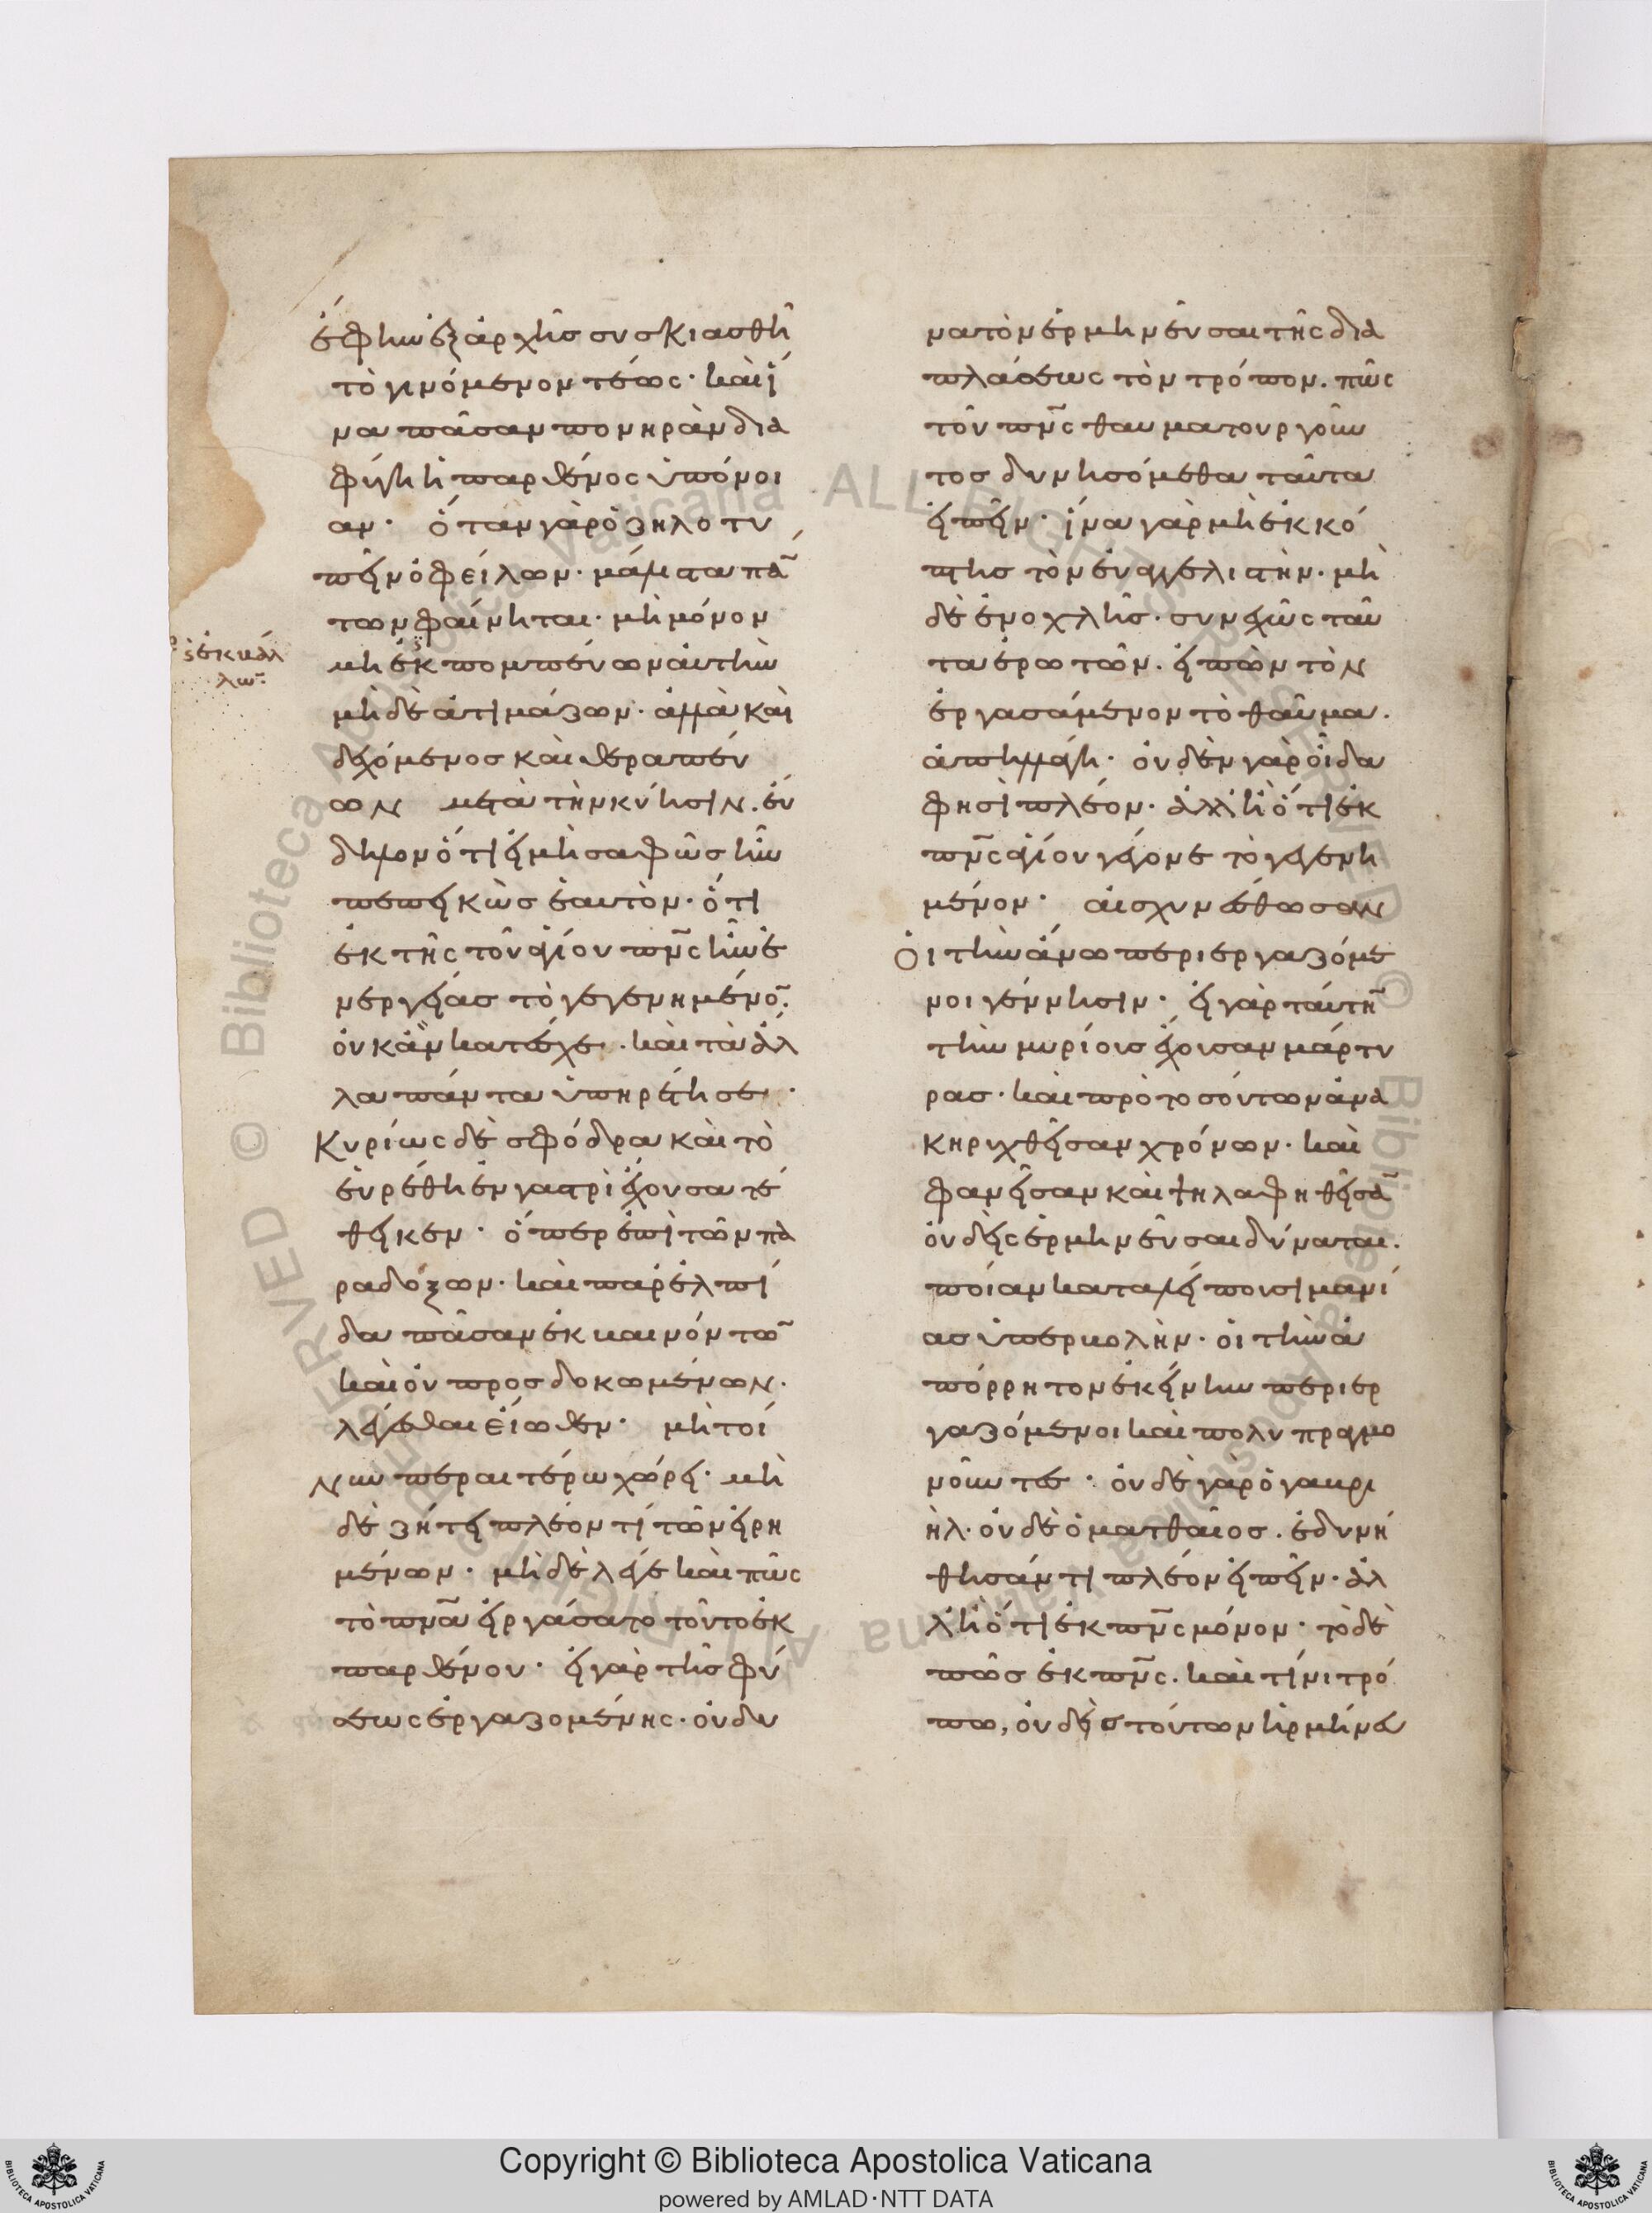 ἔφην ἐξ ἀρχῆς συσκιασθῆ
τὸ γινόμενον τέως· καὶ ἵ
να πᾶσαν πονηρὰν δια
φύγη ἡ παρθένος ὑπόνοι
αν· ὅταν γὰρ ὁ ζηλοτυ
πεῖν ὀφείλων· μάλιστα πά(ν)
των φαίνηται· μὴ μόνον
μὴ ἐκπομπεύων αὐτὴν
μὴ δὲ ἀτιμάζων· ἀλλὰ καὶ
δεχόμενος καὶ θεραπεύ
ων μετὰ τὴν κύησιν. εὔ
δηλον ὅτι εἰ μὴ σαφῶς ἦν
πεπεικὼς ἑαυτὸν· ὅτι
ἐκ τῆς τοῦ ἁγίου πνς ἦν ἐ
νεργείας τὸ γεγενημένο(ν).
οὐκ ἂν κατέσχε. καὶ τὰ ἄλ
λα πάντα ὑπηρέτησε·
Κυρίως δὲ σφόδρα καὶ τὸ
εὑρέθη ἐν γαστρὶ ἔχουσα τέ
θεικεν· ὅπερ ἐπὶ τῶν πα
ραδόξων· καὶ παρ' ἐλπί
δα πᾶσαν ἐκβαινόντω(ν)
καὶ οὐ προσδοκωμένων.
λέγεσθαι εἴωθεν· μὴ τοί
νυν περαιτέρω χώρει· μὴ
δὲ ζήτει πλέον τι τῶν εἰρη
μένων· μὴ δὲ λέγε καὶ πῶς
τὸ πνα εἰργάσατο τοῦτο ἐκ
παρθένου· εἰ γὰρ τῆς φύ
σεως ἐργαζομένης· οὐ δυ
ἐκβάλ
λω(ν)
νατὸν ἑρμηνεῦσαι τῆς δια
πλάσεως τὸν τρόπον. πῶς
τοῦ πνς θαυματουργοῦν
τος δυνησόμεθα ταῦτα
εἰπεῖν· ἵνα γὰρ μὴ ἐκκό
πτης τὸν εὐαγγελιστὴν· μὴ
δὲ ἐνοχλῆς· συνεχῶς ταῦ
τα ἐρωτῶν. εἰπὼν τὸν
ἐργασάμενον τὸ θαῦμα.
ἀπηλλάγη· οὐδὲν γὰρ οἶδα
φησὶ πλέον· ἀλλ' ἢ ὅτι ἐκ
πνς ἁγίου γέγονε τὸ γεγενη
μένον· αἰσχυνέσθωσαν
οἱ τὴν ἄνω περιεργαζόμε
νοι γέννησιν· εἰ γὰρ ταύτη(ν)
τὴν μυρίους ἔχουσαν μάρτυ
ρας· καὶ πρὸ τοσούτων ἀνα
κηρυχθεῖσαν χρόνων· καὶ
φανεῖσαν καὶ ψηλαφηθεῖσα(ν)
οὐδεὶς ἑρμηνεῦσαι δύναται.
ποίαν καταλείπουσι μανί
ας ὑπερβολὴν· οἱ τὴν ἀ
πόρρητον ἐκείνην περιερ
γαζόμενοι καὶ πολυπραγμο
νοῦντες· οὐδὲ γὰρ ὁ γαβρι
ὴλ· οὐδὲ ὁ ματθαῖος. ἐδυνή
θησάν τι πλέον εἰπεῖν· ἀλ
λ' ἢ ὅτι ἐκ πνς μόνον· τὸ δὲ
πῶς ἐκ πνς. καὶ τίνι τρό
πω, οὐδεὶς τούτων ἡρμήνευ